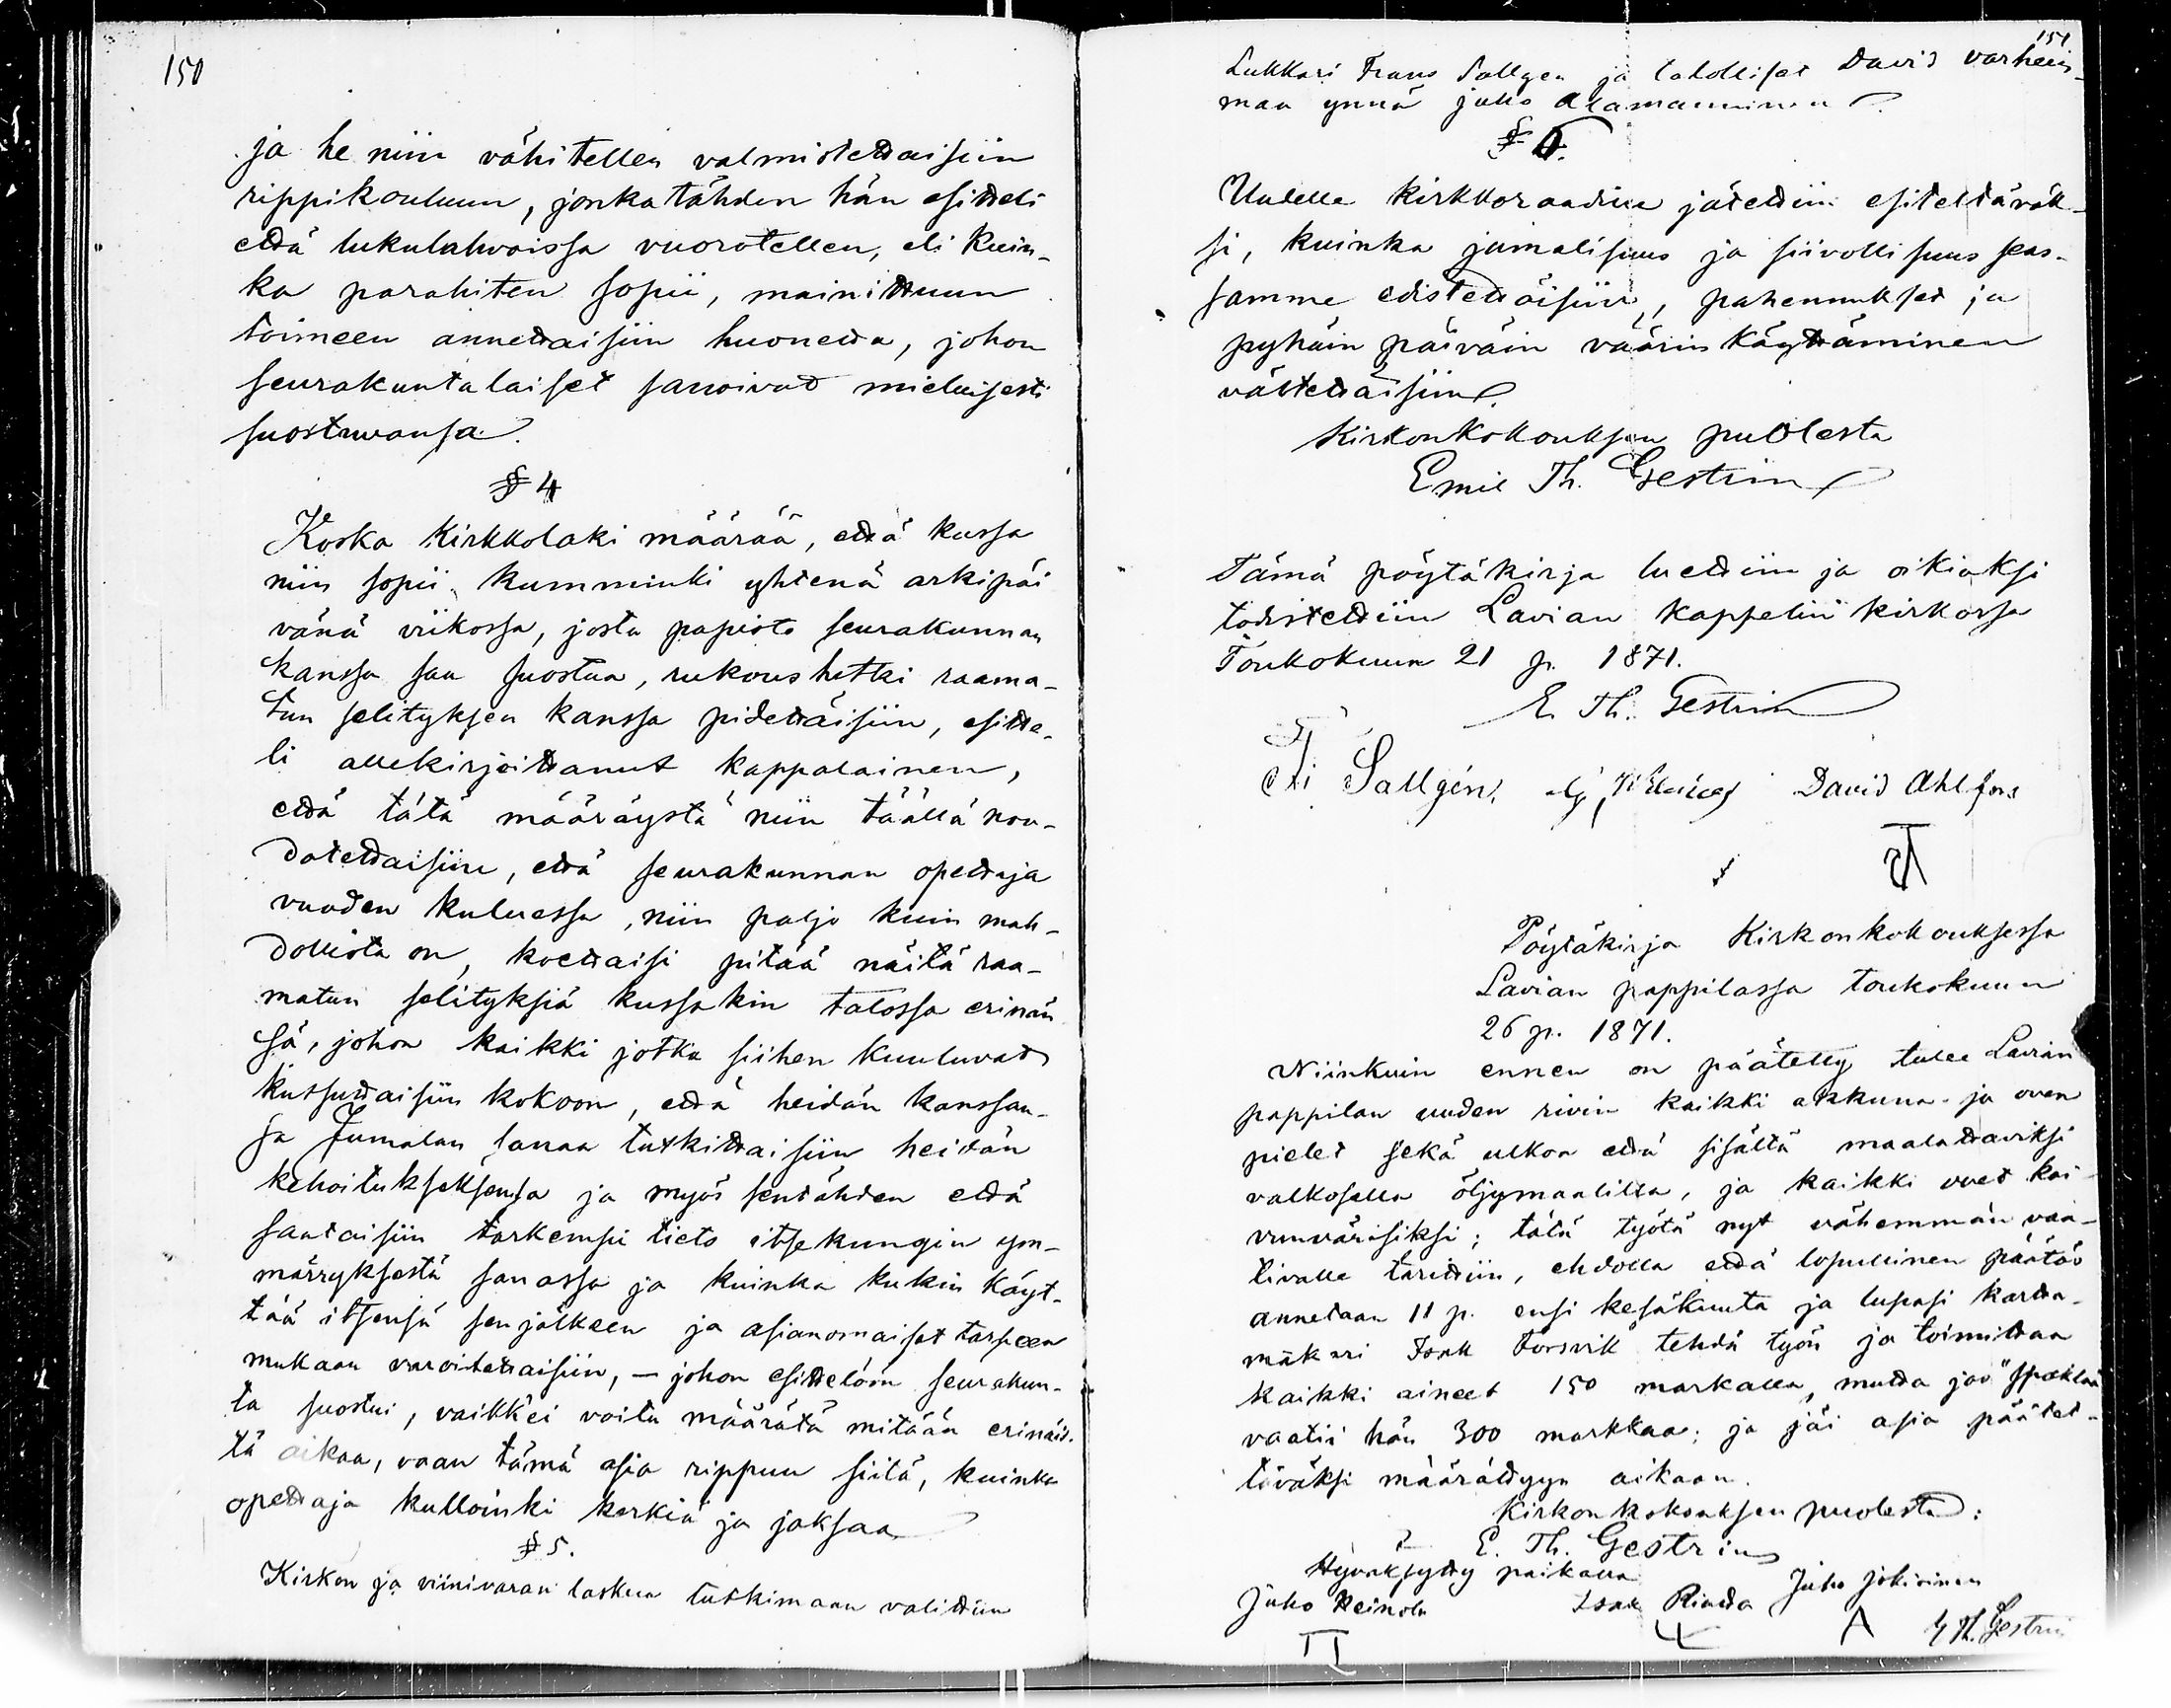 150
ja he niin vähitellen valmistettaisiin
rippikouluun, jonka tähden hän esitteli
että lukulahwoissa vuorotellen, eli kuin-
ka parahiten sopii, mainittuun
toimeen annettaisiin huonetta, johon
seurakuntalaiset sanoivat mieluisesti
suostuvansa.
§ 4
Koska Kirkkolaki määrää, että kussa
niin sopii kumminki yhtenä arkipäi
vänä viikossa, josta papisto seurakunnan
kanssa saa suostua, rukoushetki raama-
tun selityksen kanssa pidettäisiin, esitte-
li allekirjoittanut kappalainen,
että tätä määräystä niin täällä nou-
datettaisiin, että seurakunnan opettaja
vuoden kuluessa, niin paljo kuin mah-
dollista on, koettaisi pitää näitä raa-
matun selityksiä kussakin talossa erinän
sä, johon kaikki jotka siihen kuuluvat
kutsuttaisiin kokoon, että heidän kanssan-
sa Jumalan sanaa tutkittaisiin heidän
kehoitukseksensa ja myös sentähden että
saataisiin tarkempi tieto itsekungin ym-
märryksestä sanassa ja kuinka kukin käyt-
tää itsensä sen jälkeen ja asianomaiset tarpeen
mukaan varoitettaisiin, — johon esittelöön seurakun-
ta suostui, vaikk'ei voitu määrätä mitään erinäis-
tä aikaa, vaan tämä asia rippuu siitä, kuinka
opettaja kulloinki kerkiä ja jaksaa
§ 5.
Kirkon ja viinivaran laskua tutkimaan valittiin
151
Lukkari Frans Sallgen ja talolliset David Varheis-
maa ynnä Juho Alamanninen.
§ 6.
Uudelle kirkkoraadille jätettiin esiteltäväk-
si, kuinka jumalisuus ja siivollisuus seas-
samme edistettäisiin, pahennukset ja
pyhäin päiväin väärin käyttäminen
vältettäisiin.
Kirkonkokouksen puolesta
Emil Th. Gestrin
Tämä pöytäkirja luettiin ja oikiaksi
todistettiin Lavian kappelin kirkossa
Toukokuun 21 p. 1871.
E. Th. Gestrin
Sallgén. David Ahlfors
Pöytäkirja Kirkonkokouksessa
Lavian pappilassa toukokuun
26 p. 1871.
Niinkuin ennen on päätetty tulee Lavian
pappilan uuden rivin kaikki akkuna- ja oven
pielet sekä ulkoa että sisältä maalattaviksi
valkosella öljymaalilla, ja kaikki ovet kai-
vunvärisiksi; tätä työtä nyt vähemmän vaa-
tivalle tarittiin, ehdolla että lopullinen päätös
annetaan 11 p. ensi kesäkuuta ja lupasi kartta-
mäkari Isak Forsvik tehdä työn ja toimittaa
kaikki aineet 150 markalla, mutta jos "spaklaa
vaatii hän 300 markkaa; ja jäi asia päätet-
täväksi määrättyyn aikaan.
Kirkonkokouksen puolesta:
E. Th. Gestrin
Hyväksytty paikalla
Juho Heinola Isak Rintta Juho Johisinen
E Th. Gestrin